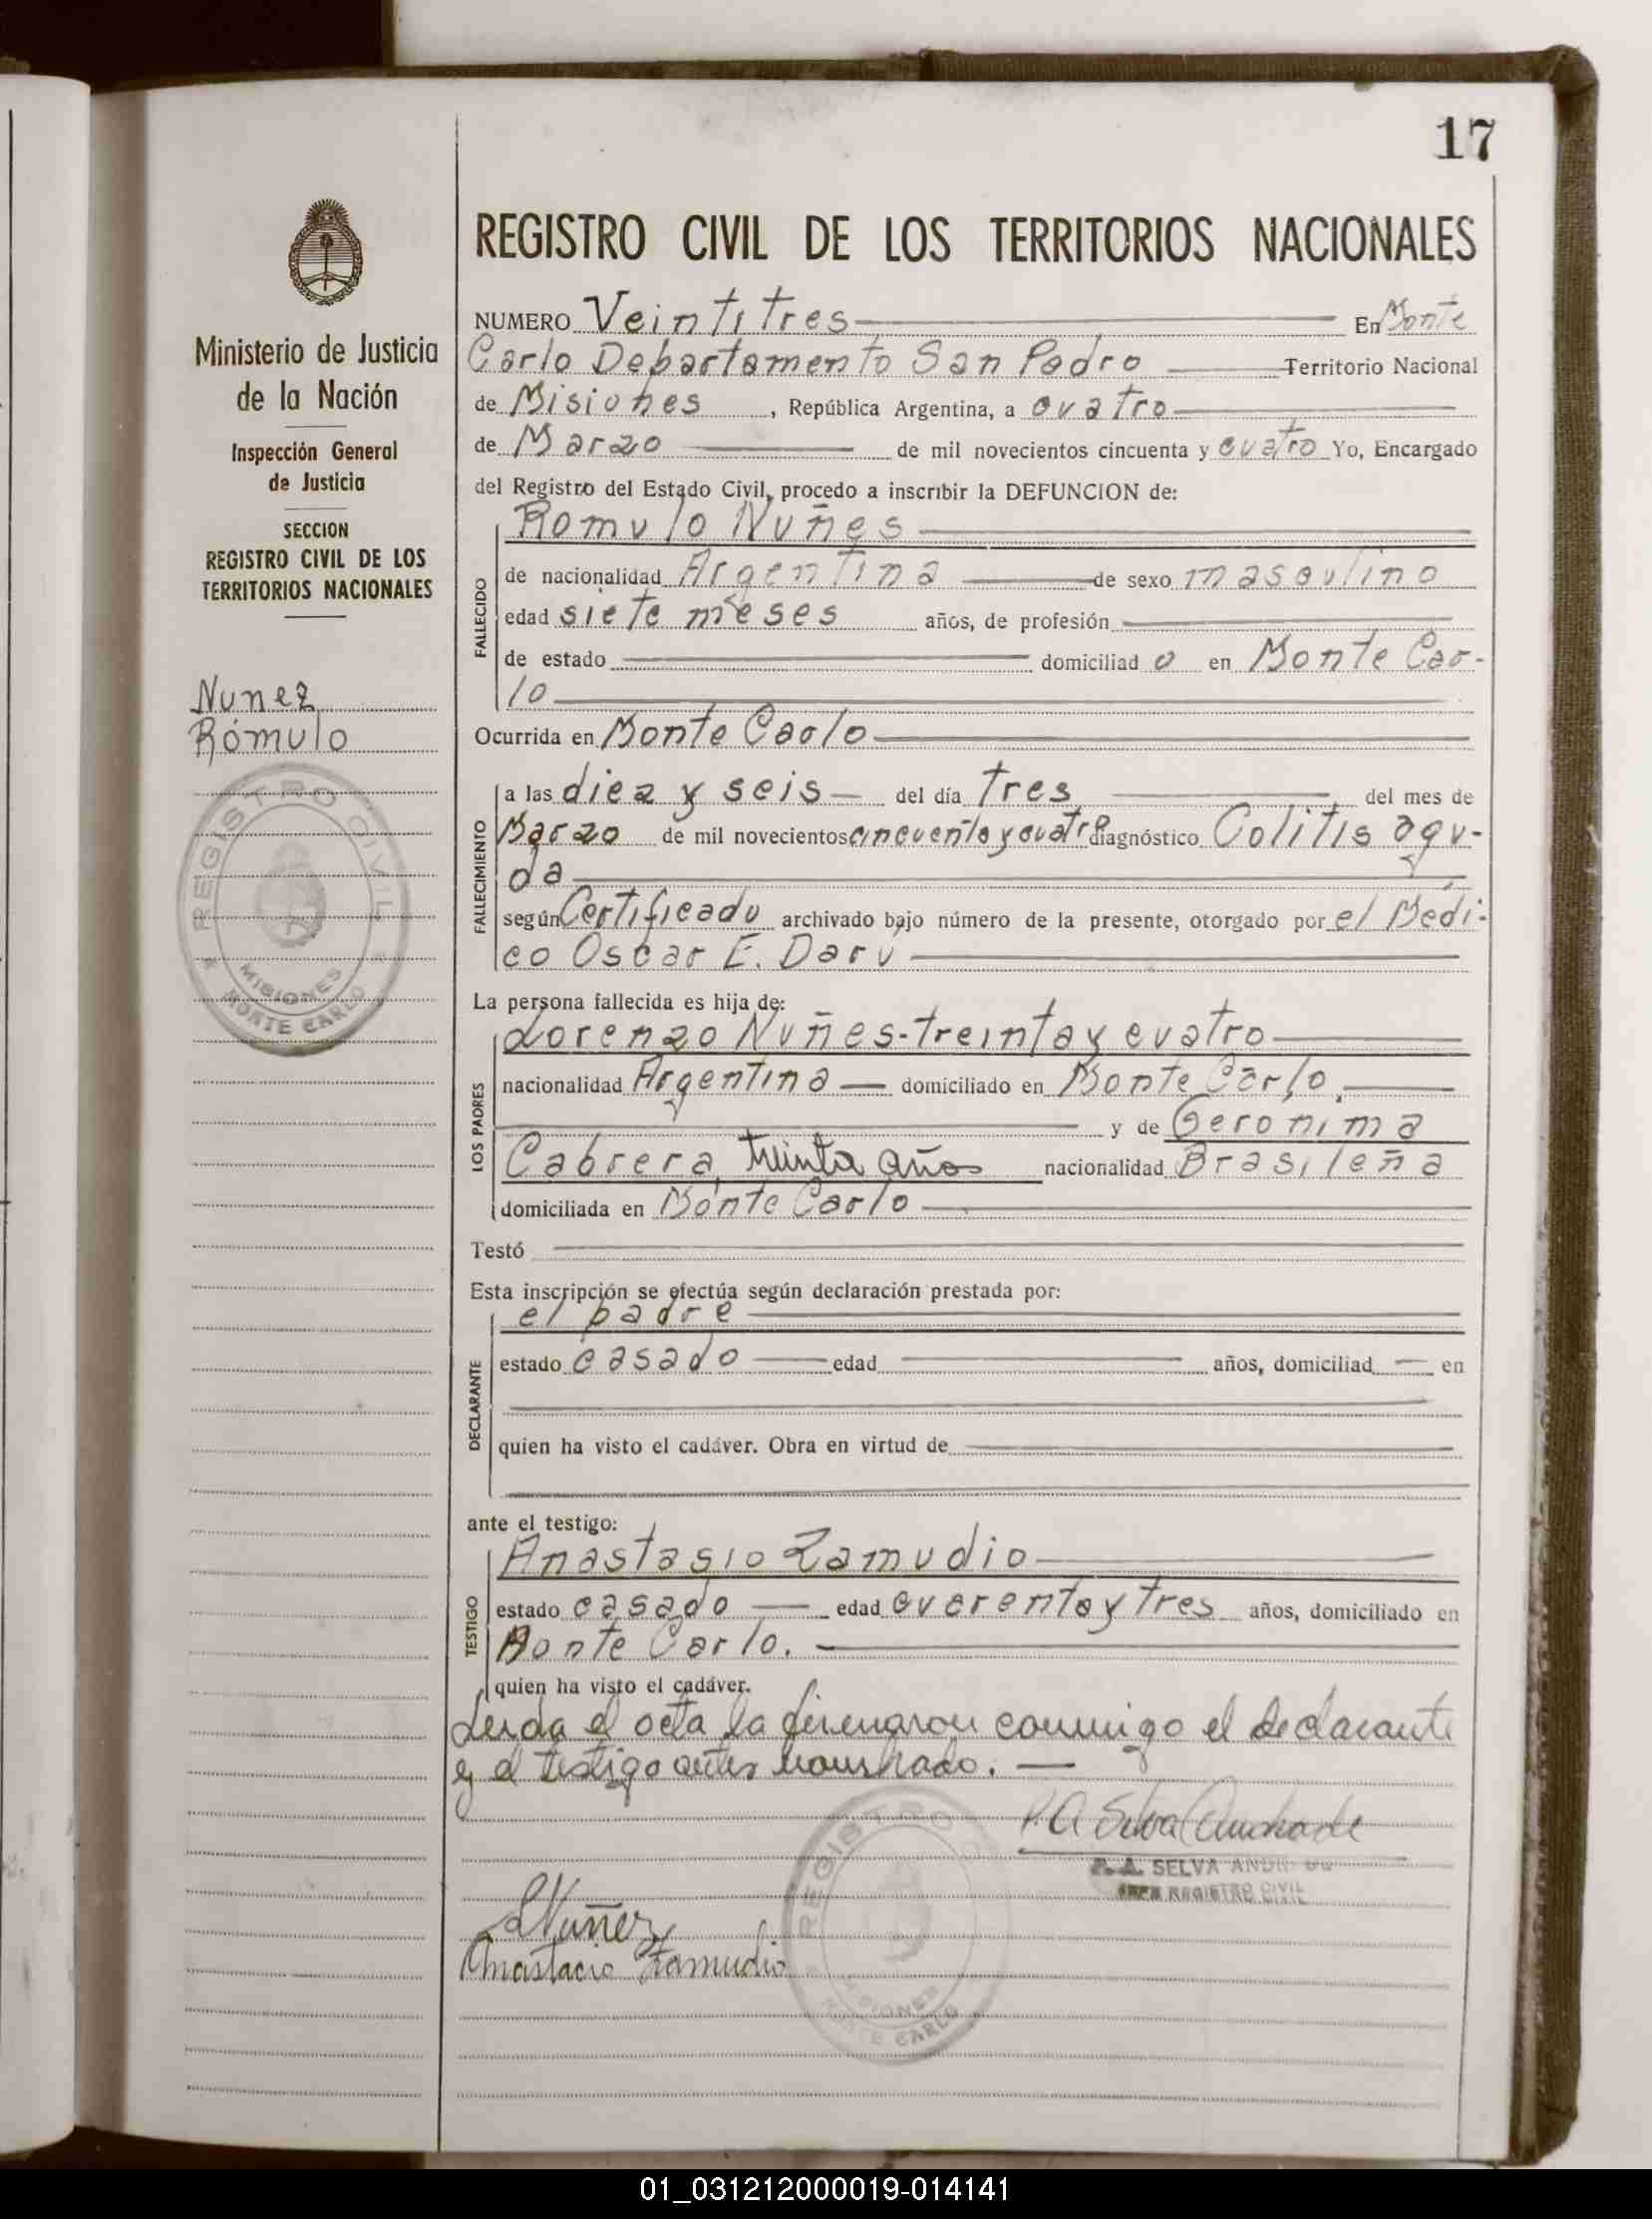 17
Ministerio de Justicia
de la Nación
Inspección General
de Justicia
SECCION
REGISTRO CIVIL DE LOS
TERRITORIOS NACIONALES
Nunez
Rómulo
REGISTRO CIVIL
MISIONES
MONTE CARLO
REGISTRO CIVIL DE LOS TERRITORIOS NACIONALES
NUMERO Veintitres En Monte
Carlo Departamento San Pedro Territorio Nacional
de Misiones, República Argentina, a cuatro
de Marzo de mil novecientos cincuenta y cuatro Yo, Encargado
del Registro del Estado Civil, procedo a inscribir la DEFUNCION de:
Romulo Nuñes
FALLECIDO
de nacionalidad Argentina de sexo masculino
edad siete meses años, de profesión
de estado domiciliad o en Monte Car-
lo
Ocurrida en Monte Carlo
FALLECIMIENTO
a las diez y seis del día tres del mes de
Marzo de mil novecientos cincuenta y cuatro diagnóstico Colitis agu-
da
según Certificado archivado bajo número de la presente, otorgado por el Médi-
co Oscar E. Daru
La persona fallecida es hija de:
LOS PADRES
Lorenzo Nuñes-treinta y cuatro
nacionalidad Argentina domiciliado en Monte Carlo,
y de Geronima
Cabrera, treinta años nacionalidad Brasileña
domiciliada en Monte Carlo
Testó
Esta inscripción se efectúa según declaración prestada por:
DECLARANTE
el padre
estado casado edad años, domiciliad en
quien ha visto el cadáver. Obra en virtud de
ante el testigo:
TESTIGO
Anastasio Zamudio
estado casado edad cuarenta y tres años, domiciliado en
Monte Carlo.
quien ha visto el cadáver.
Leida el acta la firmaron conmigo el declarante
y el testigo antes nombrado.
P.A Selva Andrade
P. A. SELVA ANDRADE
REGISTRO CIVIL
LNuñez
Anastacio Zamudio
REGISTRO
MISIONES
MONTE CARLO
01_031212000019-014141